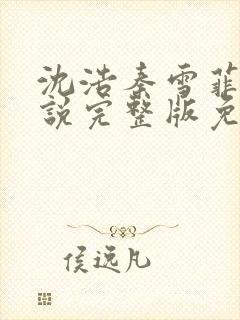 沈浩秦雪菲
說完整版免
侯逸凡